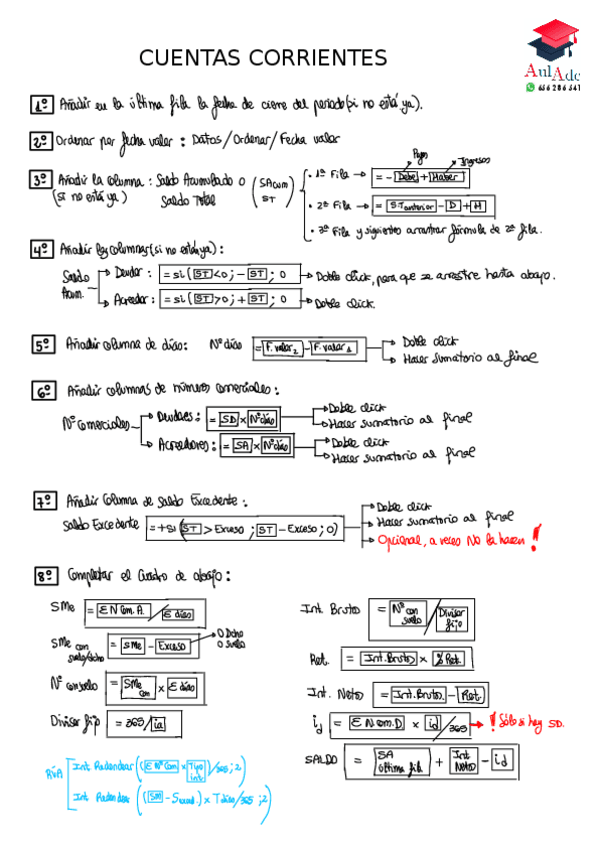 CUENTAS CORRIENTES
AulAde
656 286 541
1º Añadir en la última fila la fecha de cierre del periodo (si no está ya).
2º Ordenar por fecha valor : Datos/Ordenar/Fecha valor
3º Añadir la columna : Saldo Acumulado o Saldo Total (SAcum ST)
(si no está ya)
Pagos Ingresos
· 1ª Fila → = - Debe + Haber
· 2ª Fila → = S.Tanterior - D + H
· 3ª Fila y siguientes arrastrar fórmula de 2ª fila.
4º Añadir las columnas (si no están ya) :
Saldo Acum.
Deudor : = si ( ST < 0 ; - ST ; 0 → Doble click, para que se arrastre hasta abajo.
Acreedor : = si ( ST > 0 ; + ST ; 0 → Doble click.
5º Añadir columna de días : Nº días = F. valor 2 - F. valor 1
→ Doble click
→ Hacer sumatorio al final
6º Añadir columnas de números comerciales :
Nº comerciales
Deudores : = SD x Nº días
→ Doble click
→ Hacer sumatorio al final
Acreedores : = SA x Nº días
→ Doble click
→ Hacer sumatorio al final
7º Añadir Columna de Saldo Excedente :
Saldo Excedente = +si ( ST > Exceso ; ST - Exceso ; 0)
→ Doble click
→ Hacer sumatorio al final
→ Opcional, a veces No la hacen !
8º Completar el Cuadro de abajo :
SMe = Σ N Com. A. / Σ días
SMe con = SMe - Exceso → o Dcho o suelo
Nº con suelo = SMe con x Σ días
Divisor fijo = 365 / ia
Int. Bruto = Nº con suelo / Divisor fijo
Ret. = Int. Bruto x % Ret.
Int. Neto = Int. Bruto - Ret.
id = Σ N com. D x id / 365 → ! Sólo si hay SD.
SALDO = SA última fila + Int Neto - id
Int Redondear ( ( Σ Nº Com x Tipo int ) / 365 ; 2 )
Int Redondear ( ( SM - ) x T días / 365 ; 2 )